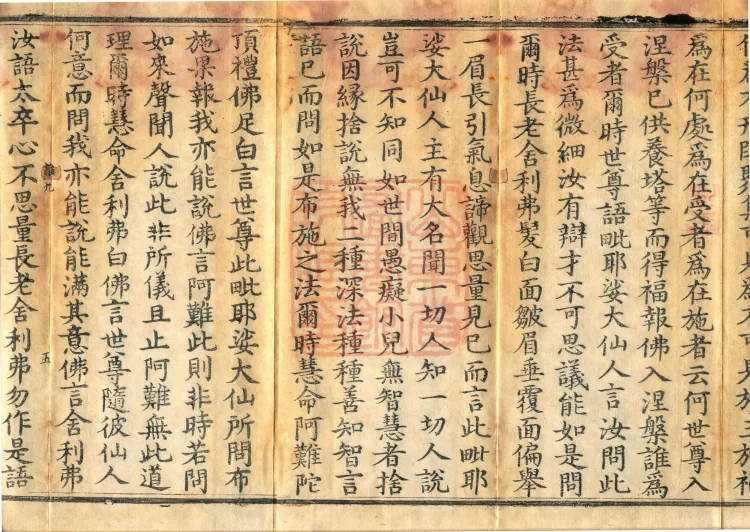 為在何處為在受者為在施者云何世尊入
涅槃已供養塔等而得福報佛入涅槃誰為
受者爾時世尊語毗耶娑大仙人言汝問此
法甚為微細汝有辯才不可思議能如是問
爾時長老舍利弗髮白面皺眉垂覆面偏舉
一眉長引氣息諦觀思量見已而言此毗耶
娑大仙人主有大名聞一切人知一切人說
豈可不知同如世間愚癡小兒無智慧者捨
說因緣捨說無我二種深法種種善知智言
語已而問如是布施之法爾時慧命阿難陀
頂禮佛足白言世尊此毗耶娑大仙所問布
施果報我亦能說佛言阿難此則非時若問
如來聲聞人說此非所儀且止阿難無此道
理爾時慧命舍利弗白佛言世尊隨彼仙人
何意而問我亦能說能滿其意佛言舍利弗
九 五
汝語太卒心不思量長老舍利弗勿作是語